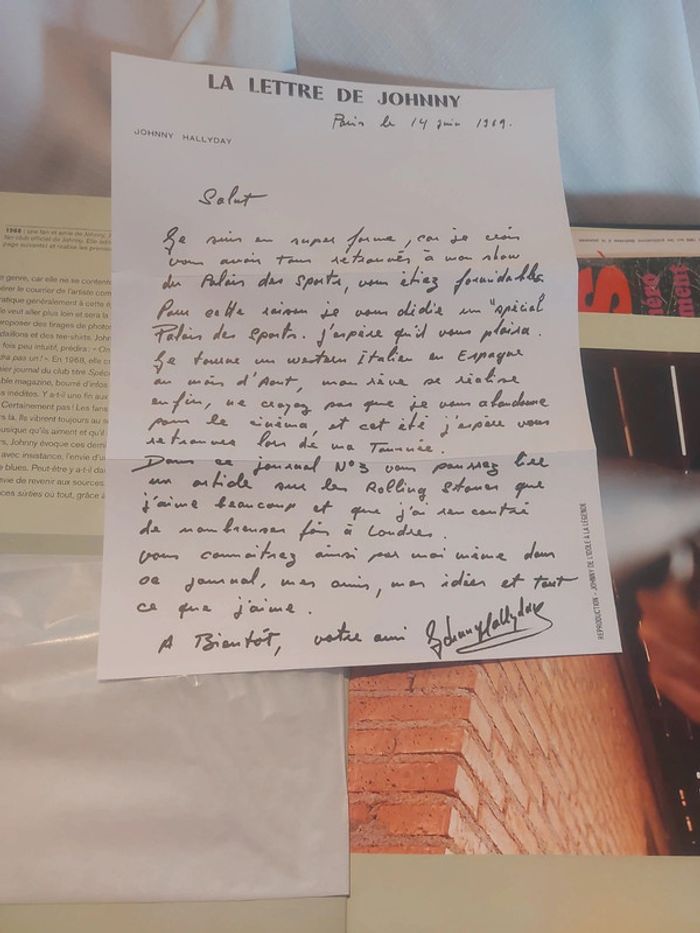 LA LETTRE DE JOHNNY
Paris le 14 juin 1969.
JOHNNY HALLYDAY
Salut
Je suis en super forme, car je crois
vous avoir tous retrouvés à mon show
du Palais des Sports, vous étiez formidables
Pour cette raison je vous dédie un "spécial
Palais des Sports. j'espère qu'il vous plaira.
Je tourne un western Italien en Espagne
au mois d'Aout, mon rêve se réalise
enfin, ne croyez pas que je vous abandonne
pour le cinéma, et cet été j'espère vous
retrouver lors de ma Tournée.
Dans ce journal N°3 vous pourrez lire
un article sur les Rolling Stones que
j'aime beaucoup et que j'ai rencontré
de nombreuses fois à Londres.
Vous connaitrez ainsi par moi même dans
ce journal, mes amis, mes idées et tout
ce que j'aime.
A Bientôt, votre ami Johnny Hallyday
REPRODUCTION - JOHNNY DE L'IDOLE À LA LÉGENDE
1968 : une fan et amie de Johnny,
fan club officiel de Johnny. Elle
page suivante) et réalise les premiers
genre, car elle ne se contente
érer le courrier de l'artiste com
ratique généralement à cette é
le veut aller plus loin et sera la
roposer des tirages de photos
daillons et des tee-shirts. John
fois peu intuitif, prédira : « On
dra pas un! ». En 1968, elle c
ier journal du club titré Spéc
ble magazine, bourré d'infos
inédites. Y a-t-il une fin aux
Certainement pas! Les fans
s là. Ils vibrent toujours au s
usique qu'ils aiment et qu'il
s, Johnny évoque ces derni
avec insistance, l'envie d'u
blues. Peut-être y a-t-il da
nvie de revenir aux sources
ces sixties où tout, grâce à
S